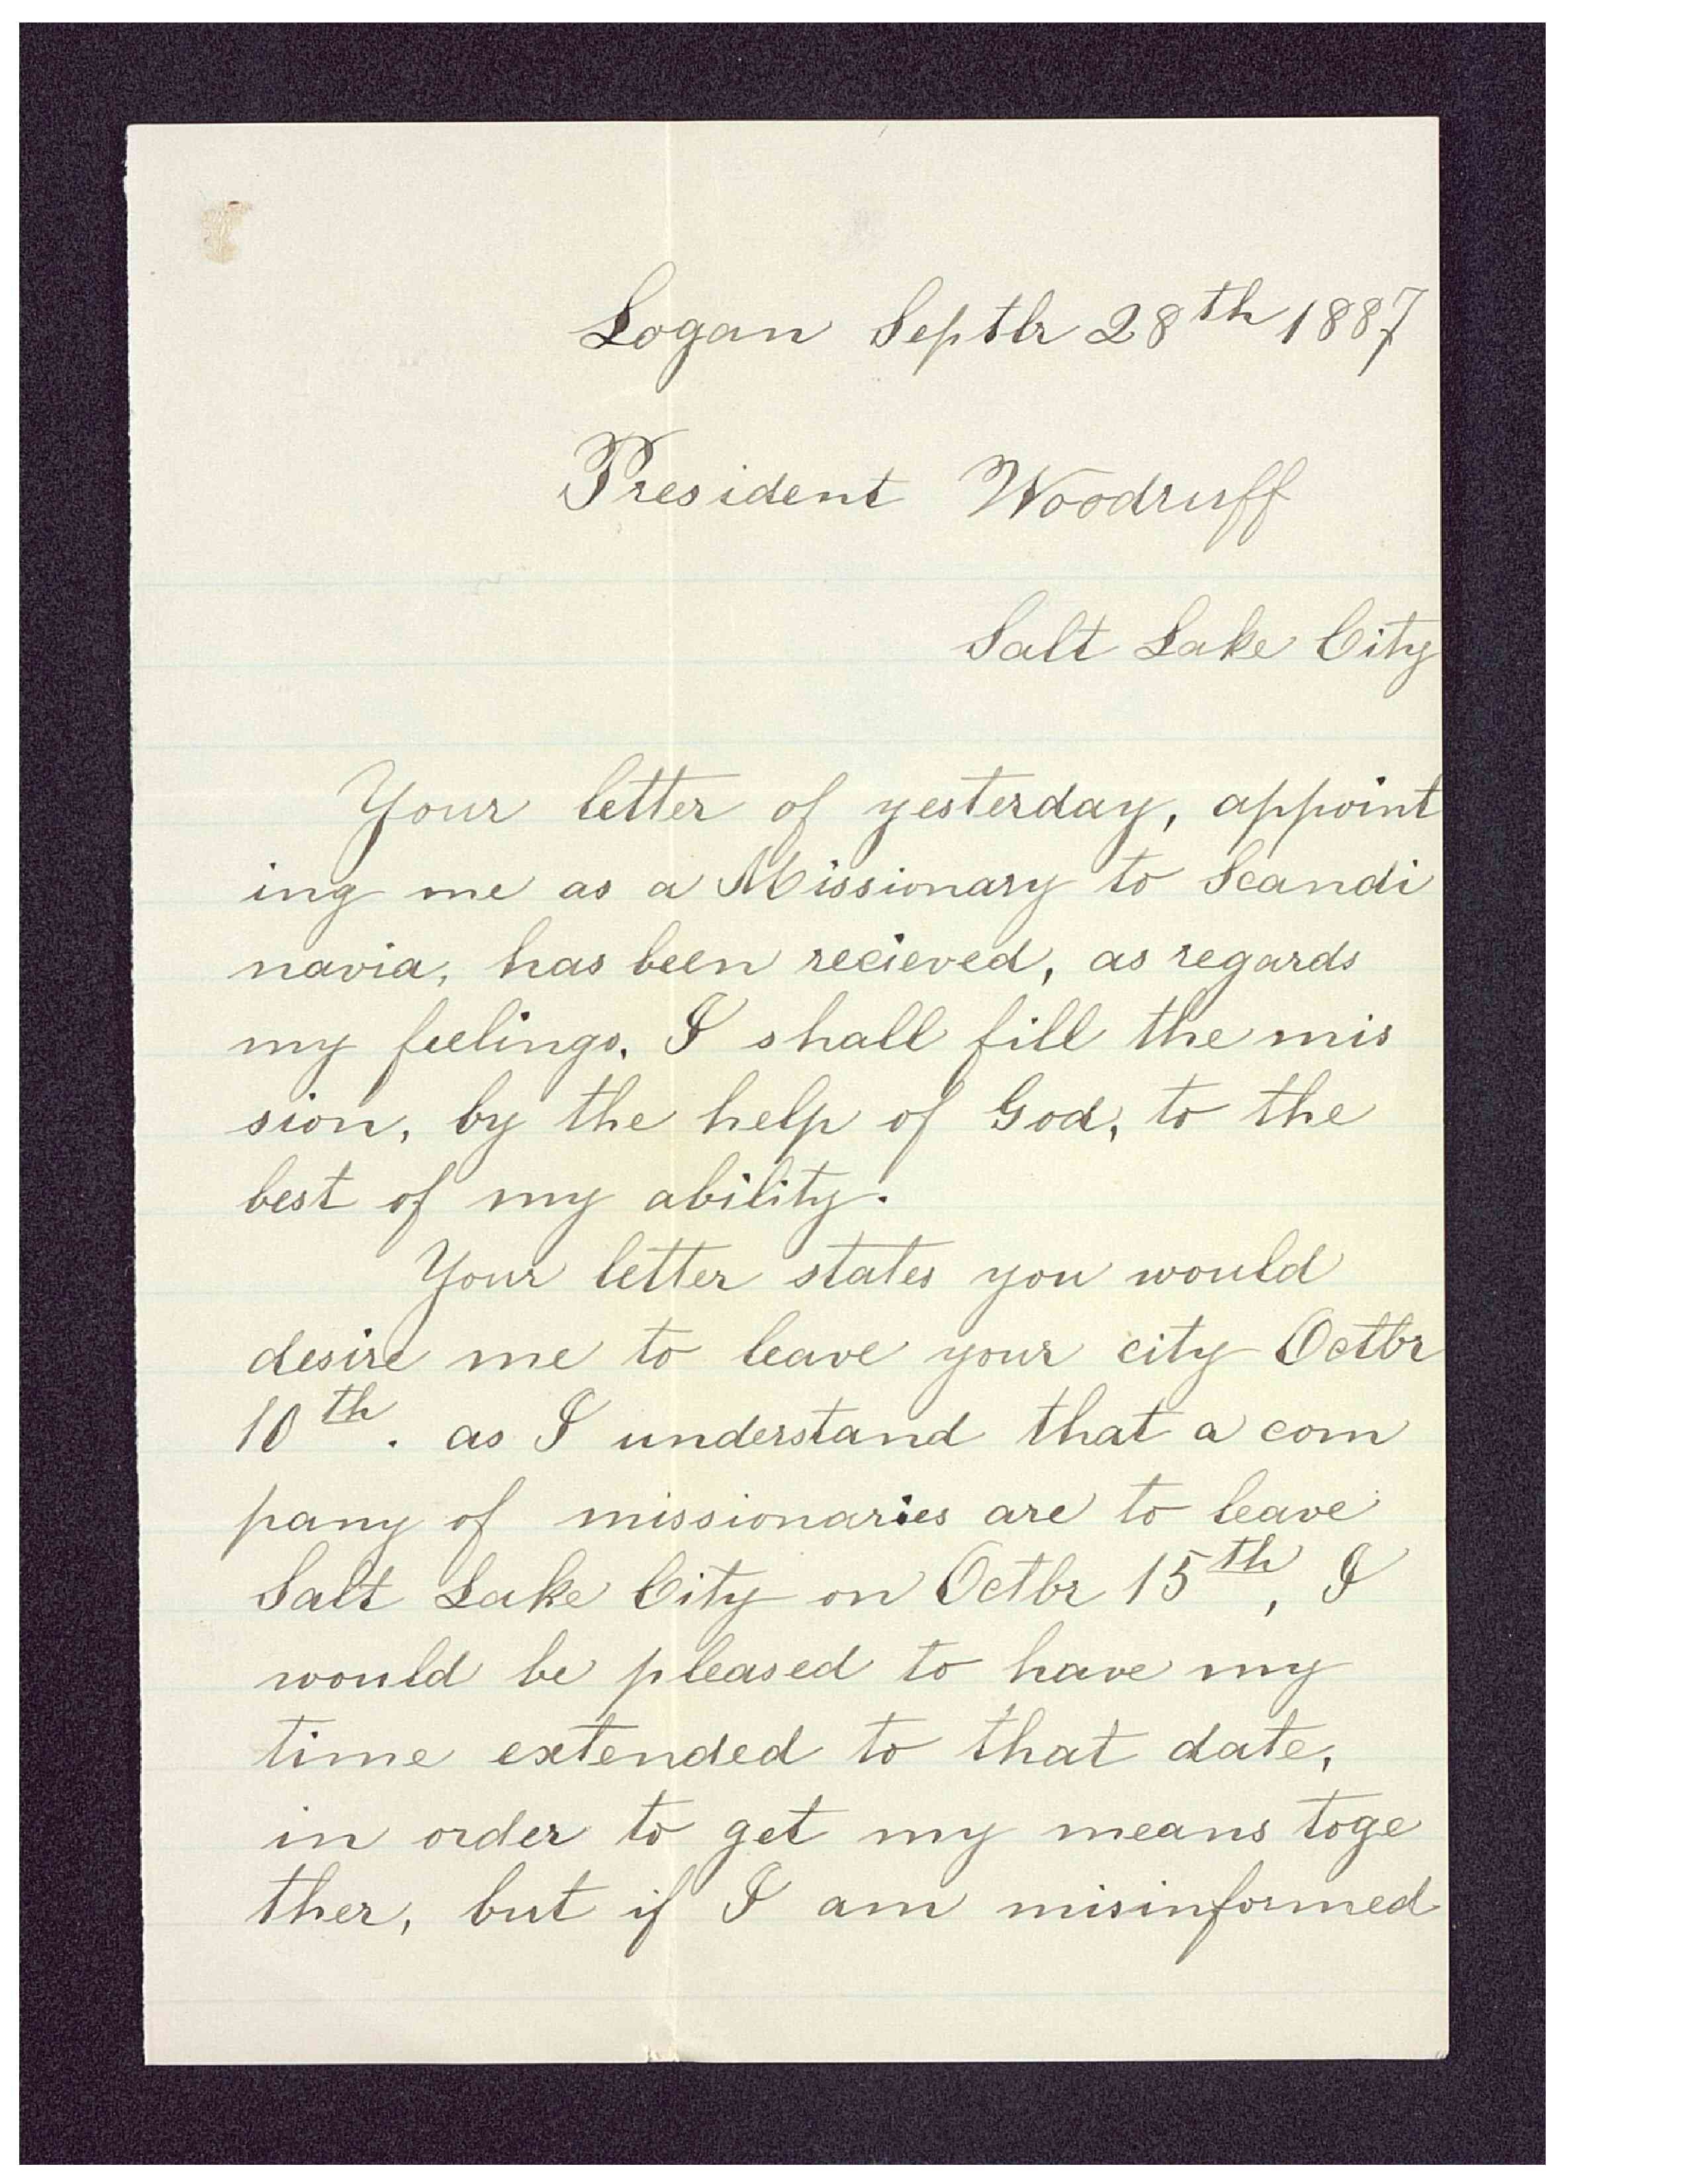 Logan Septbr 28th 1887
President Woodruff
Salt Lake City
Your letter of yesterday, appoint
ing me as a Missionary to Scandi
navia, has been recieved, as regards
my feelings. I shall fill the mis
sion, by the help of God, to the
best of my ability.
Your letter states you would
desire me to leave your city Octbr
10th. as I understand that a com
pany of missionaries are to leave
Salt Lake City on Octbr 15th, I
would be pleased to have my
time extended to that date,
in order to get my means toge
ther, but if I am misinformed